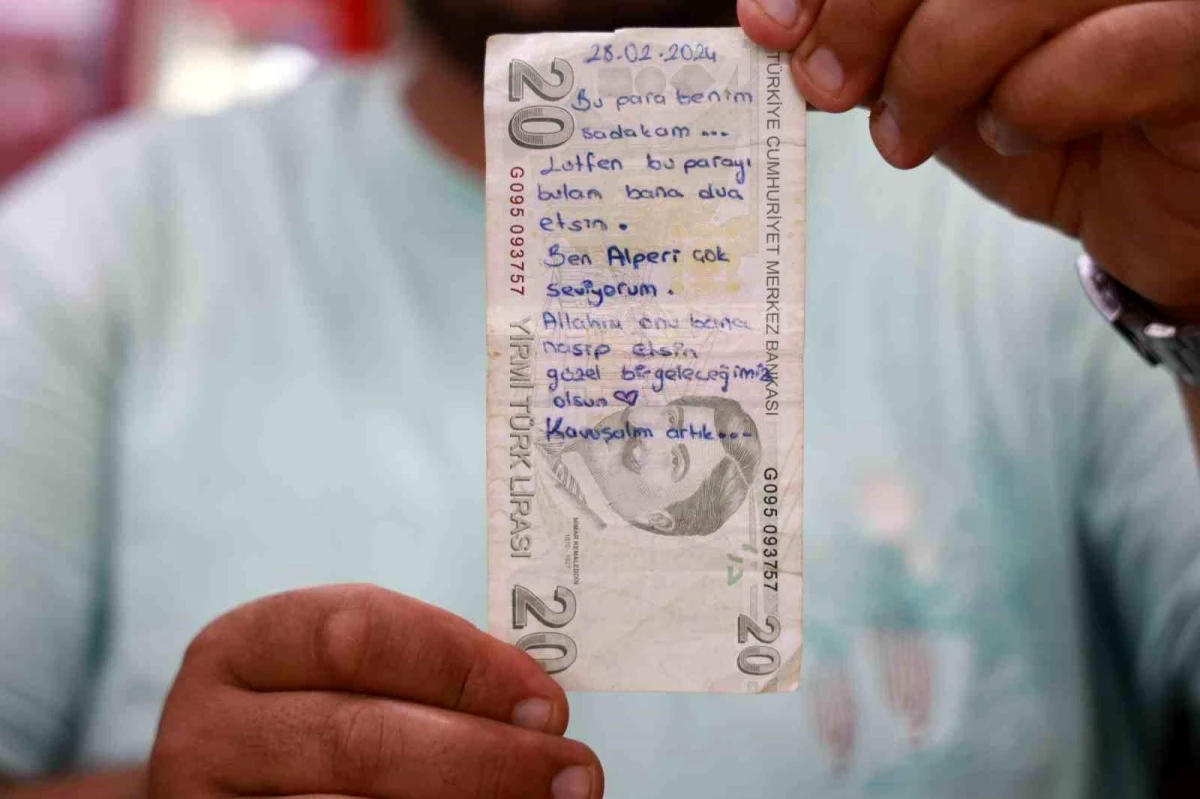 28.02.2024
Bu para benim
sadakam ...
Lutfen bu parayı
bulam bana dua
etsın .
Ben Alperi çok
seviyorum .
Allahım onu bana
nasip etsin
güzel bir geleceğimiz
olsun ♡
Kavuşalım artık...
20
G095 093757
YİRMİ TÜRK LİRASI
20
TÜRKİYE CUMHURİYET MERKEZ BANKASI
G095 093757
20
MİMAR KEMALEDDİN
1870 - 1927